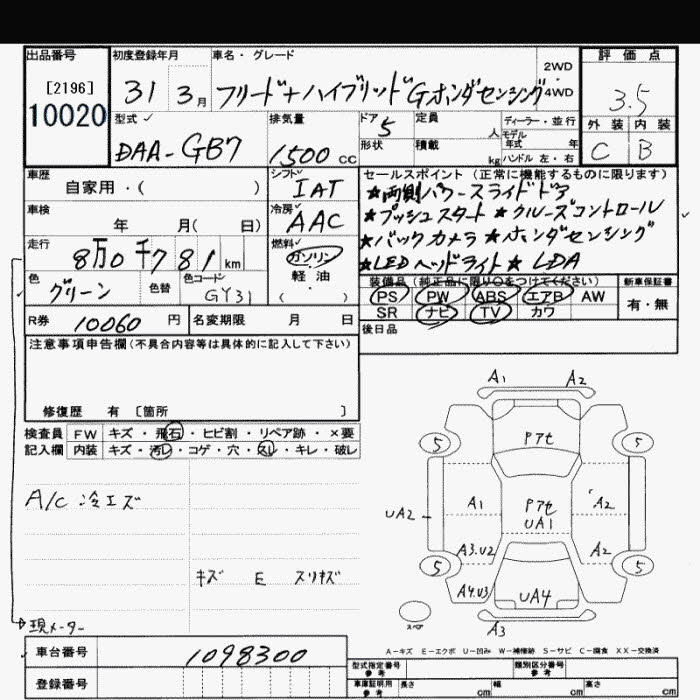 出品番号 初度登録年月 車名・グレード 2WD 評価点
[2196] 31 3月 フリード+ハイブリッドGホンダセンシング 4WD 3.5
10020 型式 排気量 ドア 定員 人 ディーラー・並行 外装 内装
DAA-GB7 1500 cc 5 モデル年式 年 C B
形状 積載 kg ハンドル 左・右
車歴 シフト セールスポイント (正常に機能するものに限ります)
自家用・( ) IAT ★両側パワースライドドア
車検 冷房 ★プッシュスタート ★クルーズコントロール
年 月( 日) AAC ★バックカメラ ★ホンダセンシング
走行 燃料 ★LEDヘッドライト ★LDA
8万0千781km ガソリン
色 色替 色コード 軽・油 装備品(純正品に限り○をつけてください) 新車保証書
グリーン GY31 ・( ) PS PW ABS エアB AW 有・無
R券 10060円 名変期限 月 日 SR ナビ TV カワ
注意事項申告欄(不具合内容等は具体的に記入して下さい) 後日品
修復歴 有 〔箇所 〕
検査員 FW キズ・飛石・ヒビ割・リペア跡・×要
記入欄 内装 キズ・汚レ・コゲ・穴・スレ・キレ・破レ
A1 A2
5 Pアセ 5
A/C 冷エズ
A1 Pアセ A2
UA2 UA1
A3.U2 A2
キズ E スリキズ
5 5
A4.U3 UA4
スペア
A3
現メーター
A-キズ E-エクボ U-凹み W-補修跡 S-サビ C-腐食 XX-交換済
車台番号 1098300 型式指定番号 参考 類別区分番号 参考
登録番号 車庫証明用 参考 長さ cm 幅 cm 高さ cm